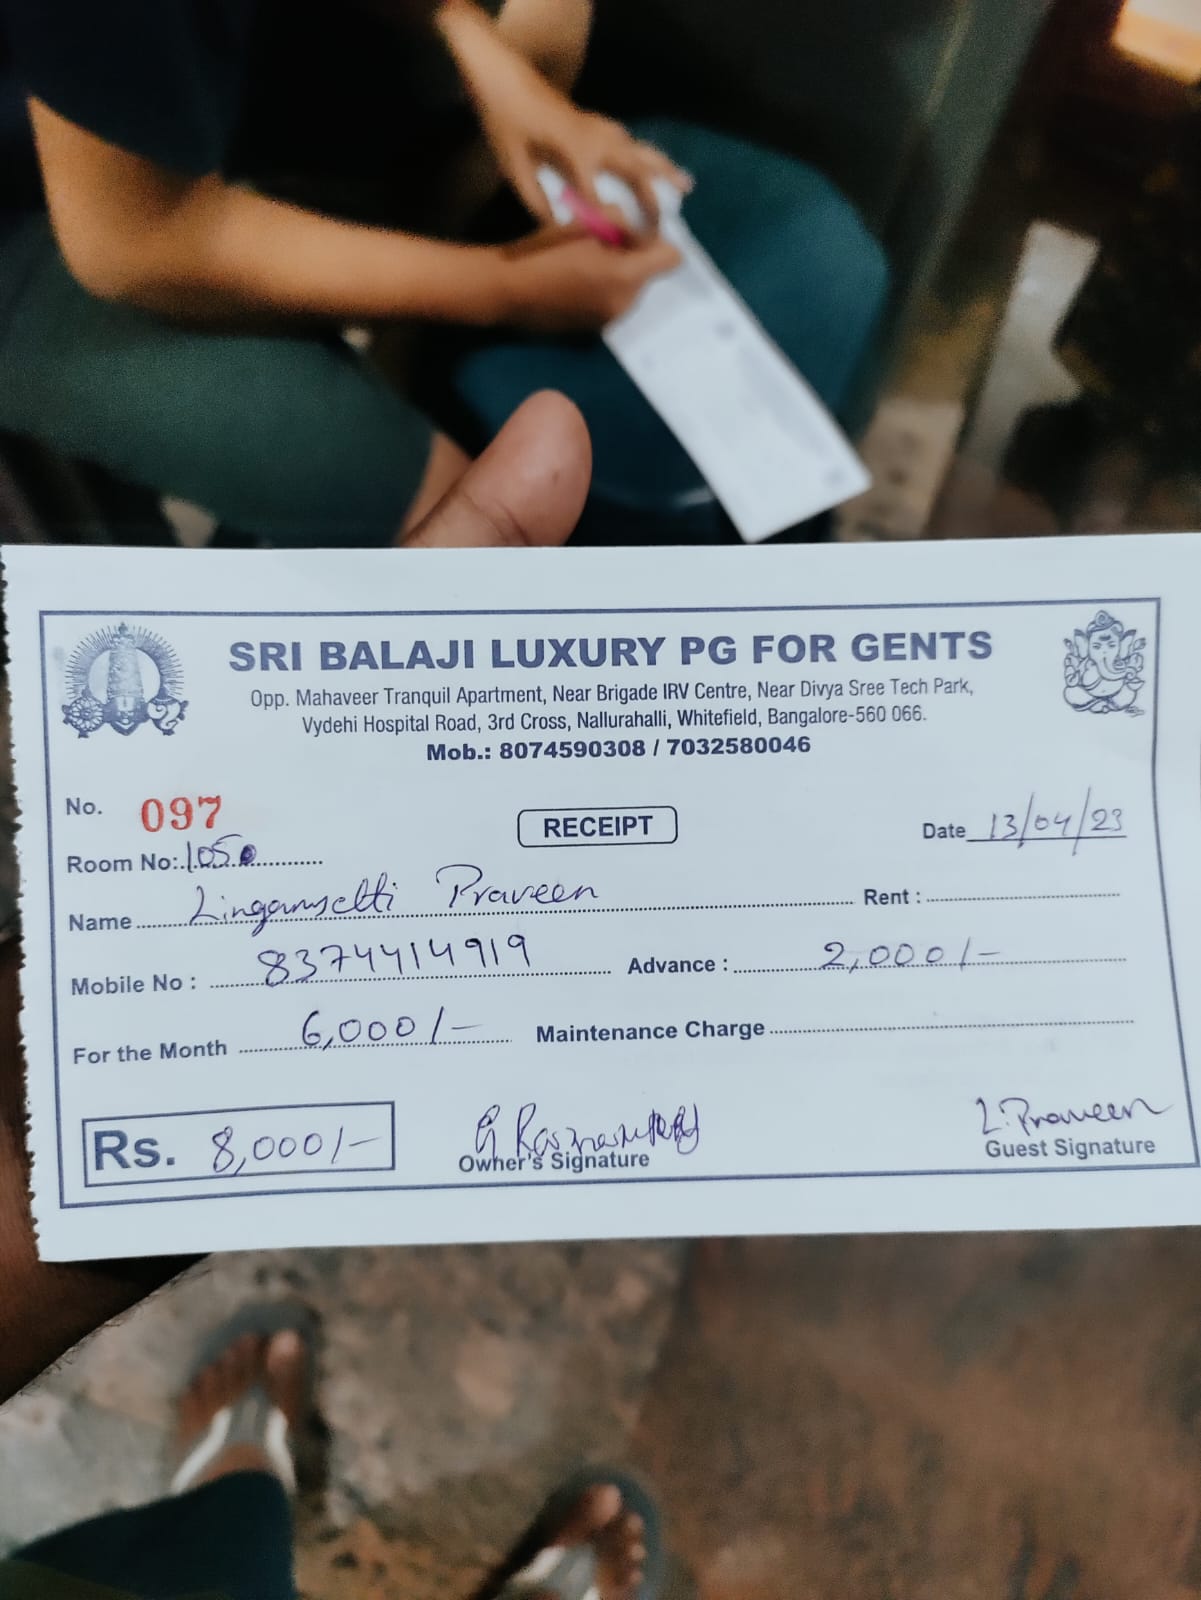 SRI BALAJI LUXURY PG FOR GENTS
Opp. Mahaveer Tranquil Apartment, Near Brigade IRV Centre, Near Divya Sree Tech Park,
Vydehi Hospital Road, 3rd Cross, Nallurahalli, Whitefield, Bangalore-560 066.
Mob.: 8074590308 / 7032580046
No. 097
RECEIPT
Date 13/04/23
Room No: 105
Name Lingamsetti Praveen Rent :
Mobile No : 8374414919 Advance : 2,000/-
For the Month 6,000/- Maintenance Charge
Rs. 8,000/-
Owner's Signature
L. Praveen
Guest Signature